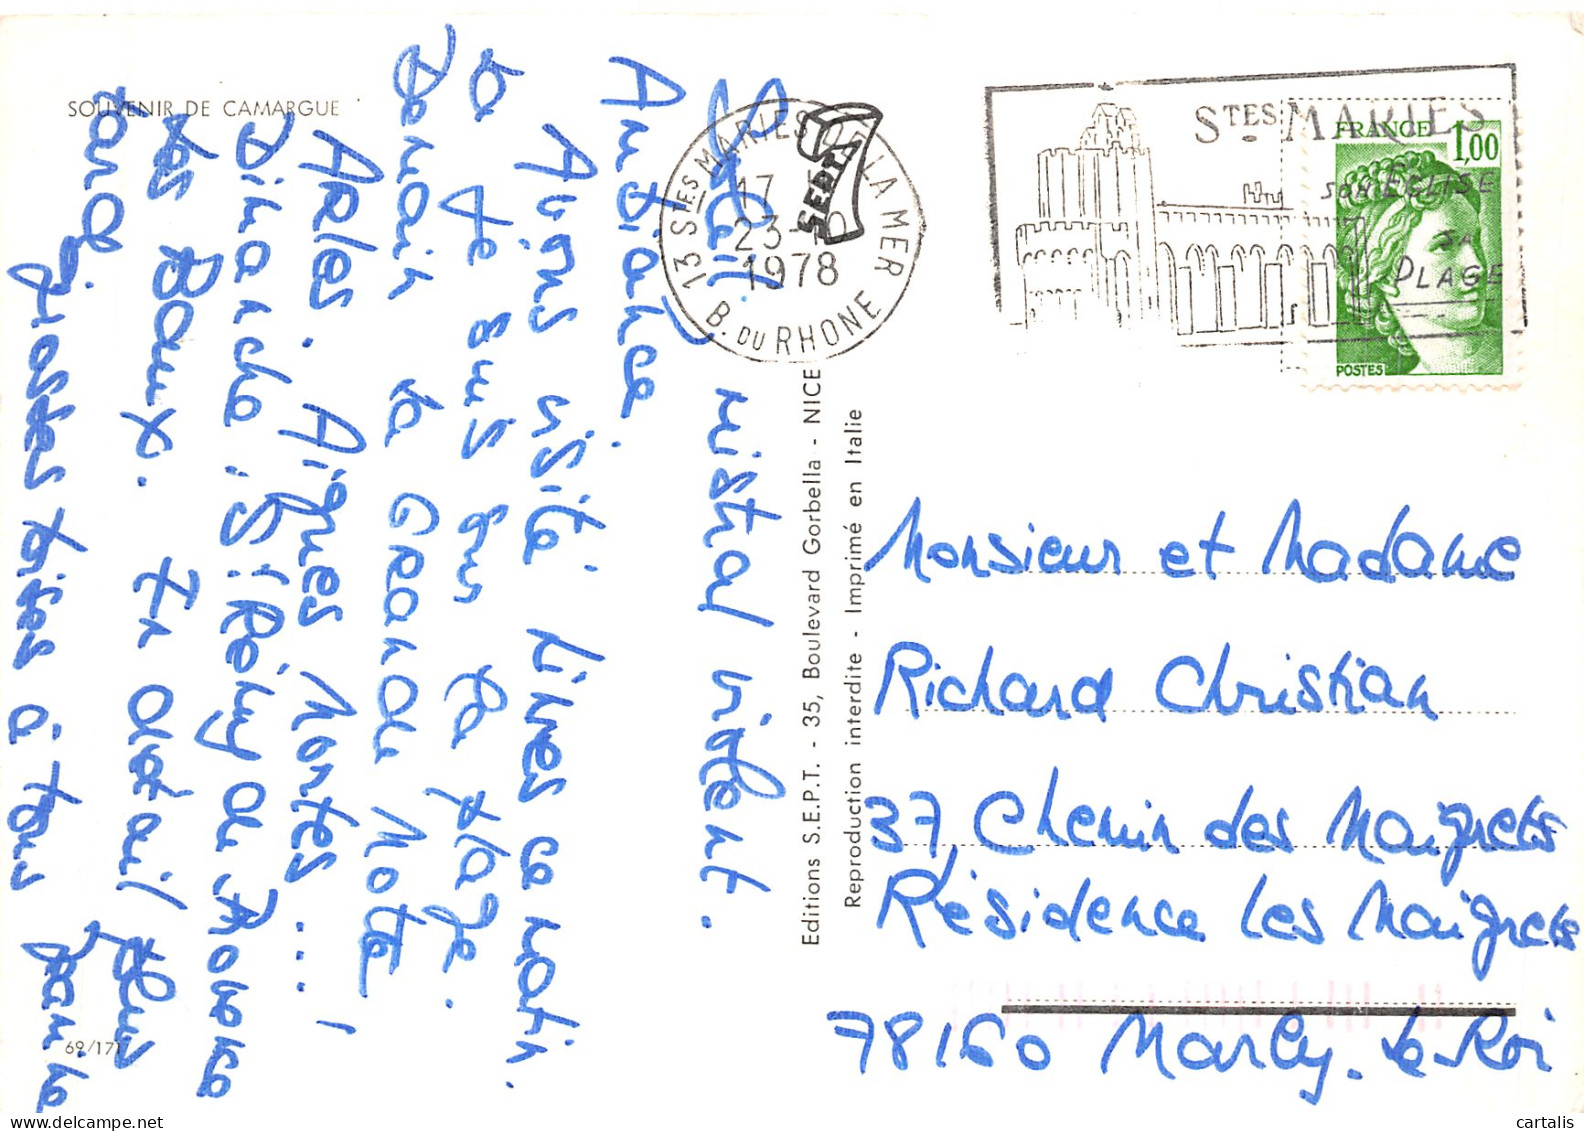 SOUVENIR DE CAMARGUE
Soleil. mistral violent.
Ambiance.
Avons visité Nîmes ce matin.
je suis sur la plage.
Demain la Grande Motte
Arles. Aigues Mortes....!
Dimanche, St Rémy de Provence
les Baux. En détail plus
tard.
grosses bises à tous
69/171
Editions S.E.P.T. - 35, Boulevard Gorbella - NICE
Reproduction interdite - Imprimé en Italie
SEPT
13 STES MARIES DE LA MER
17
23-
1978
B. DU RHONE
STES MARIES
SON EGLISE
SA
PLAGE
FRANCE 1,00
POSTES
Monsieur et Madame
Richard Christian
37 Chemin des Maigrets
Résidence les Maigrets
78160 Marly-le-Roi
cartalis
delcampe.net